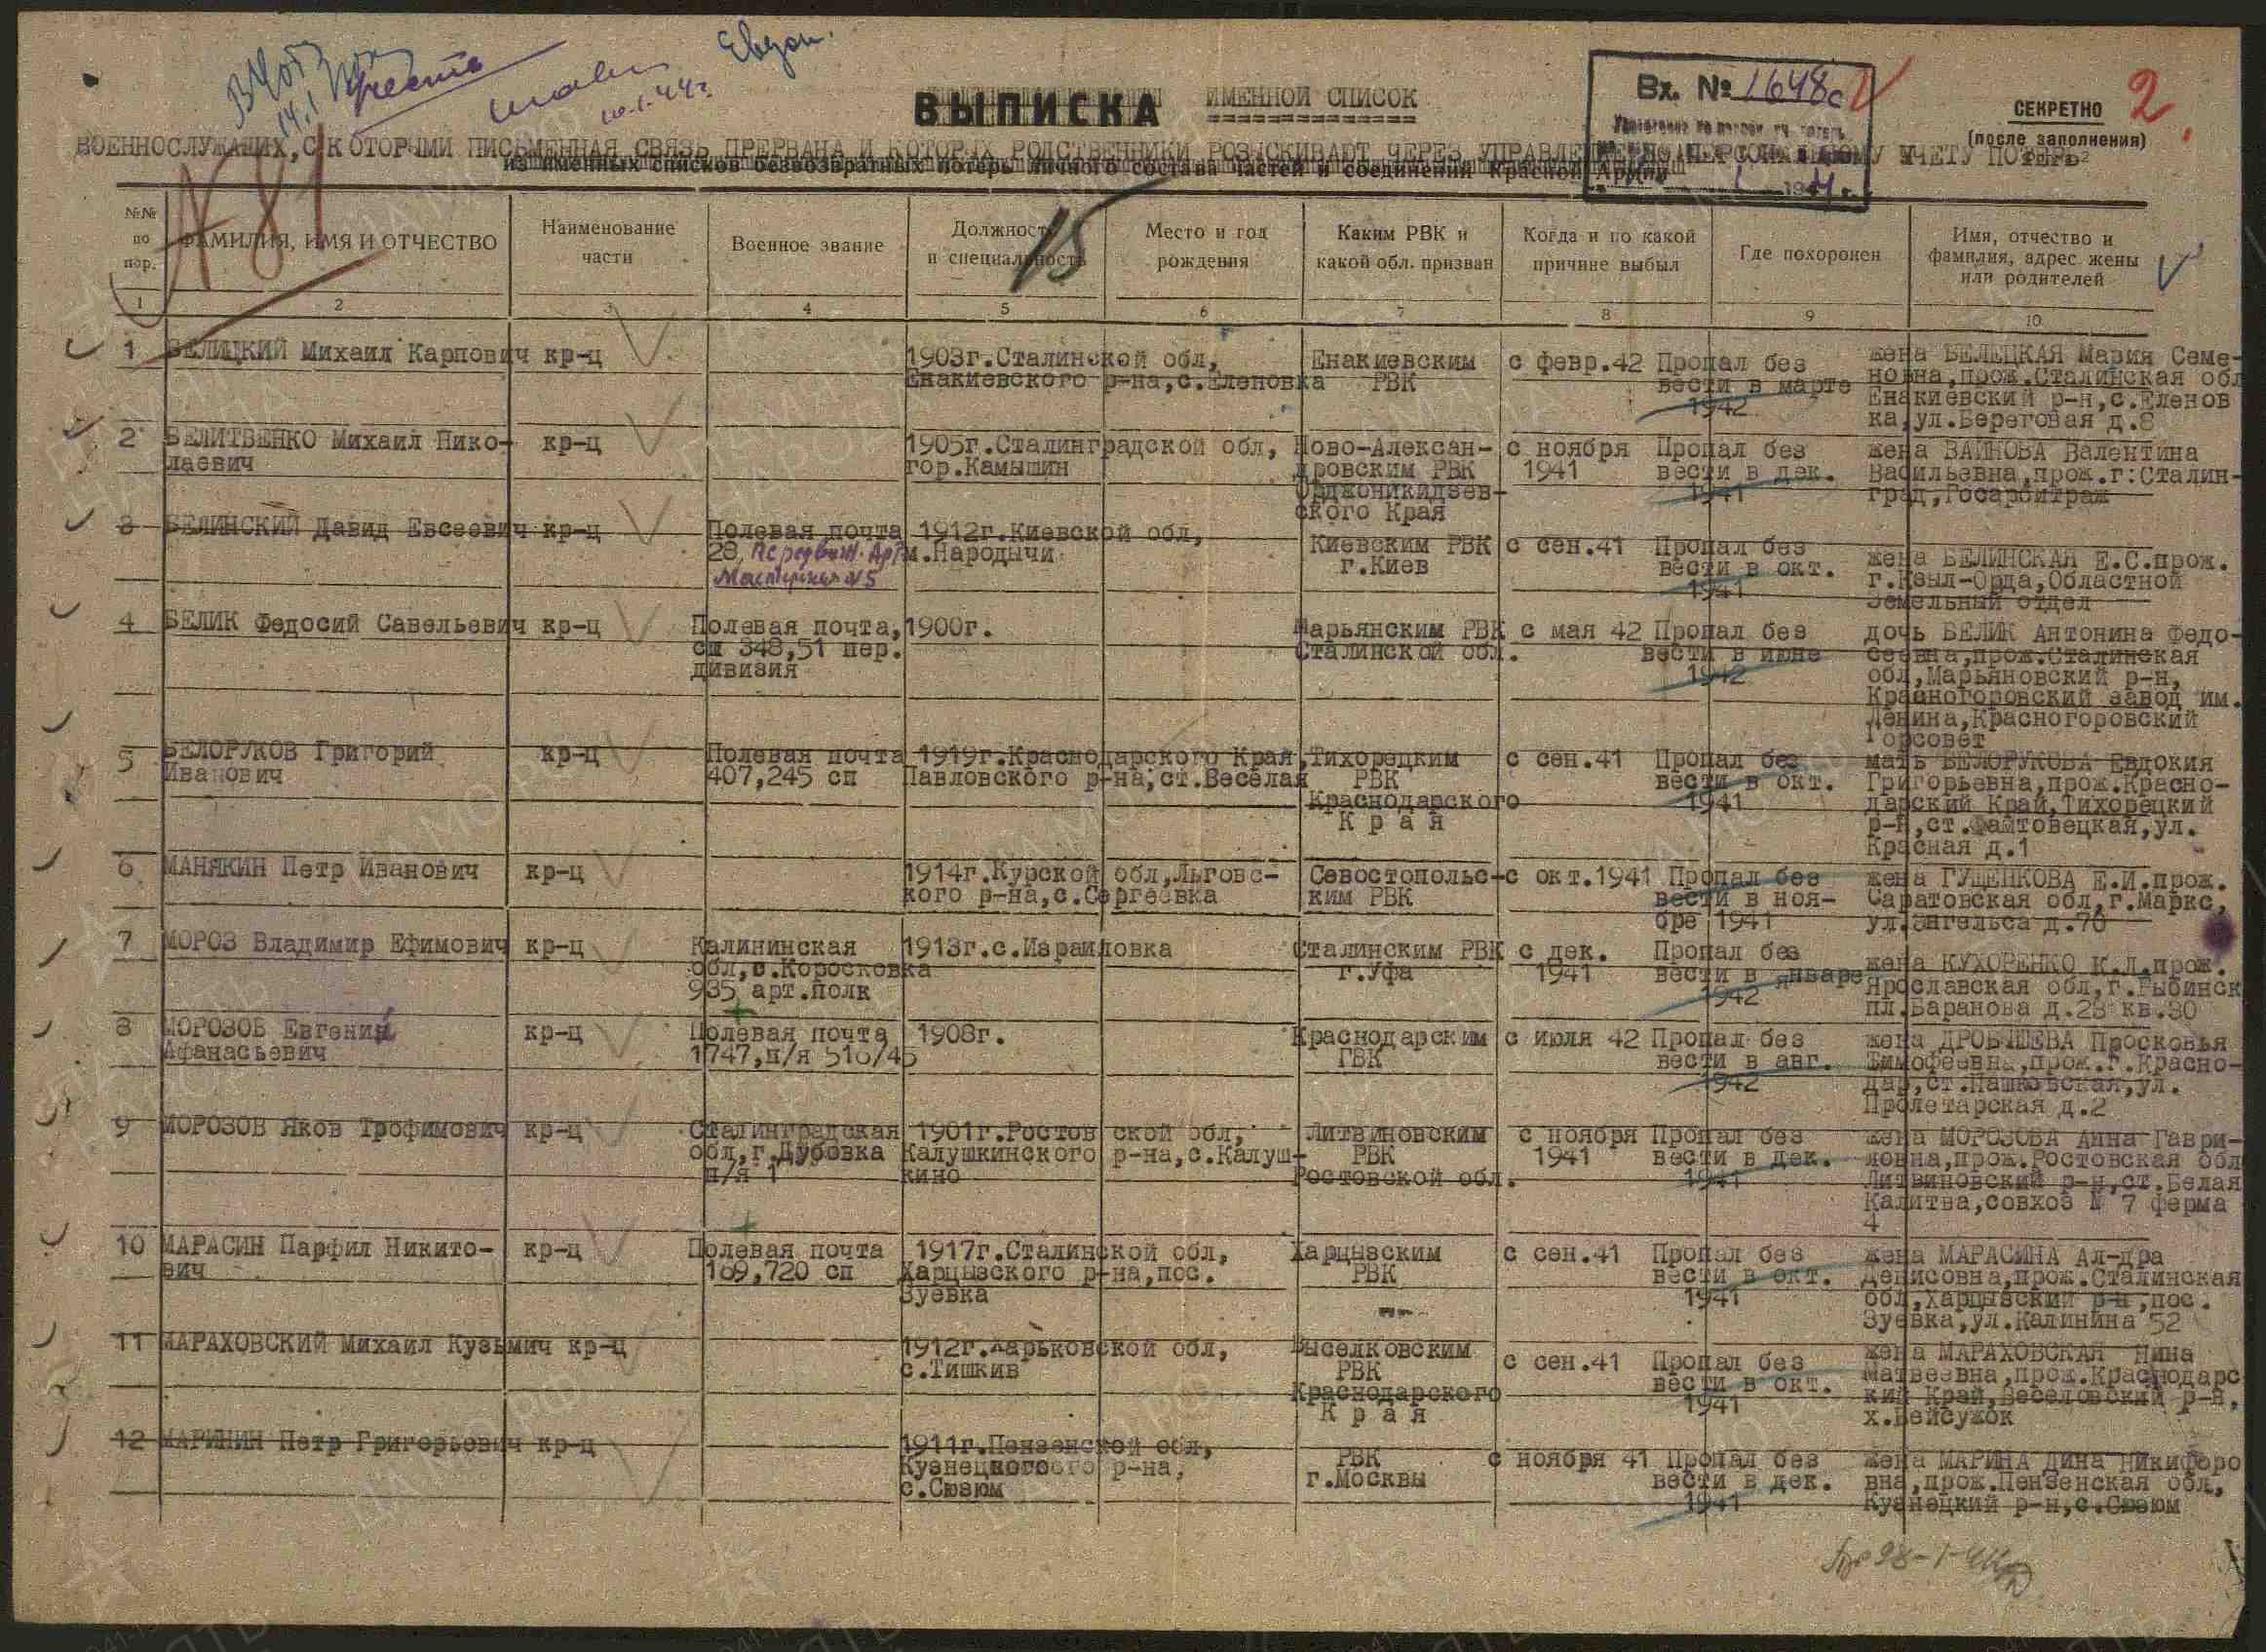 Евдок.
14.1
10.1.44г.
ВЫПИСКА ИМЕННОЙ СПИСОК
Вх. № 1648с
СЕКРЕТНО
(после заполнения)
2
ВОЕННОСЛУЖАЩИХ, С КОТОРЫМИ ПИСЬМЕННАЯ СВЯЗЬ ПРЕРВАНА И КОТОРЫХ РОДСТВЕННИКИ РОЗЫСКИВАЮТ ЧЕРЕЗ УПРАВЛЕНИЕ ПО ПЕРСОНАЛЬНОМУ УЧЕТУ ПОТЕРЬ
из именных списков безвозвратных потерь личного состава частей и соединений Красной Армии
81
15
№№ по пор.
ФАМИЛИЯ, ИМЯ И ОТЧЕСТВО
Наименование части
Военное звание
Должность и специальность
Место и год рождения
Каким РВК и какой обл. призван
Когда и по какой причине выбыл
Где похоронен
Имя, отчество и фамилия, адрес жены или родителей
1 2 3 4 5 6 7 8 9 10
1 БЕЛИЦКИЙ Михаил Карпович кр-ц 1903г.Сталинской обл, Енакиевским с февр.42 Пропал без жена БЕЛЕЦКАЯ Мария Семе-
Енакиевского р-на,с.Еленовка РВК вести в марте новна,прож.Сталинская обл
1942 Енакиевский р-н,с.Еленов
ка,ул.Береговая д.8
2 БЕЛИТВЕНКО Михаил Нико- кр-ц 1905г.Сталинградской обл, Ново-Алексан- с ноября Пропал без жена ВАИНОВА Валентина
лаевич гор.Камышин дровским РВК 1941 вести в дек. Васильевна,прож.г:Сталин-
Орджоникидзев- 1941 град,Госарбитраж
ского Края
3 БЕЛИНСКИЙ Давид Евсеевич кр-ц Полевая почта 1912г.Киевской обл,
28, Передвиж. Арт м.Народычи Киевским РВК с сен.41 Пропал без жена БЕЛИНСКАЯ Е.С.прож.
Мастерская №5 г.Киев вести в окт. г.Кзыл-Орда,Областной
1941 Земельный отдел
4 БЕЛИК Федосий Савельевич кр-ц Полевая почта, 1900г. Марьянским РВК с мая 42 Пропал без дочь БЕЛИК Антонина Федо-
сп 348,51 пер. Сталинской обл. вести в июне сеевна,прож.Сталинская
дивизия 1942 обл,Марьяновский р-н,
Красногоровский завод им.
Ленина,Красногоровский
Горсовет
5 БЕЛОРУКОВ Григорий кр-ц Полевая почта 1919г.Краснодарского Края, Тихорецким с сен.41 Пропал без мать БЕЛОРУКОВА Евдокия
Иванович 407,245 сп Павловского р-на,ст.Веселая РВК вести в окт. Григорьевна,прож.Красно-
Краснодарского 1941 дарский Край,Тихорецкий
Края р-н,ст.Фамтовецкая,ул.
Красная д.1
6 МАНЯКИН Петр Иванович кр-ц 1914г.Курской обл,Льговс- Севостопольс- с окт.1941 Пропал без жена ГУЩЕНКОВА Е.И.прож.
кого р-на,с.Сергеевка ким РВК вести в ноя- Саратовская обл,г.Маркс,
бре 1941 ул.Энгельса д.70
7 МОРОЗ Владимир Ефимович кр-ц Калининская 1913г.с.Израиловка Сталинским РВК с дек. Пропал без
обл,с.Коросковка г.Уфа 1941 вести в январе жена КУХОРЕНКО К.Л.прож.
935 арт.полк 1942 Ярославская обл,г.Рыбинск
пл.Баранова д.23 кв.30
8 МОРОЗОВ Евгений кр-ц Полевая почта 1908г. Краснодарским с июля 42 Пропал без жена ДРОБЫШЕВА Просковья
Афанасьевич 1747,п/я 516/45 ГВК вести в авг. Тимофеевна,прож.г.Красно-
1942 дар,ст.Пашковская,ул.
Пролетарская д.2
9 МОРОЗОВ Яков Трофимович кр-ц Сталинградская 1901г.Ростовской обл, Литвиновским с ноября Пропал без жена МОРОЗОВА Анна Гаври-
обл,г.Дубовка Калушкинского р-на,с.Калуш- РВК 1941 вести в дек. ловна,прож.Ростовская обл
п/я 1 кино Ростовской обл. 1941 Литвиновский р-н,ст.Белая
Калитва,совхоз № 7 ферма
4
10 МАРАСИН Парфил Никито- кр-ц Полевая почта 1917г.Сталинской обл, Харцызским с сен.41 Пропал без жена МАРАСИНА Ал-дра
вич 169,720 сп Харцызского р-на,пос. РВК вести в окт. Денисовна,прож.Сталинская
Зуевка 1941 обл,Харцызский р-н,пос.
Зуевка,ул.Калинина 52
11 МАРАХОВСКИЙ Михаил Кузьмич кр-ц 1912г.Харьковской обл, Выселковским с сен.41 Пропал без жена МАРАХОВСКАЯ Нина
с.Тишкив РВК вести в окт. Матвеевна,прож.Краснодарс
Краснодарского 1941 кий Край,Веселовский р-н,
Края х.Бейсужок
12 МАРИНИН Петр Григорьевич кр-ц 1911г.Пензенской обл, РВК с ноября 41 Пропал без жена МАРИНА Дина Никифоро
Кузнецкого р-на, г.Москвы вести в дек. вна,прож.Пензенская обл,
с.Сюзюм 1941 Кузнецкий р-н,с.Сюзюм